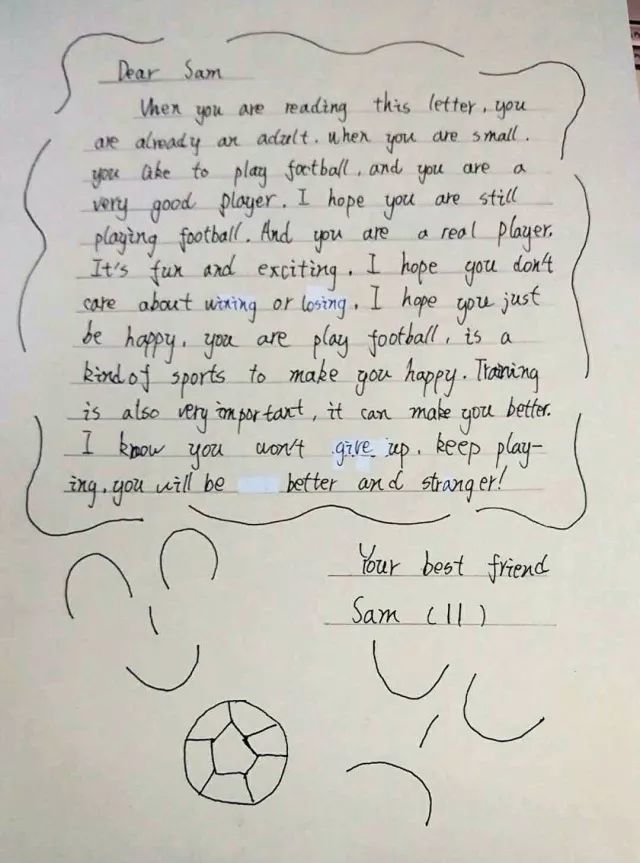 Dear Sam
When you are reading this letter, you
are already an adult. When you are small.
you like to play football, and you are a
very good player. I hope you are still
playing football. And you are a real player.
It's fun and exciting. I hope you don't
care about wining or losing. I hope you just
be happy. you are play football, is a
kind of sports to make you happy. Training
is also very important, it can make you better.
I know you won't give up. keep play-
ing, you will be better and stranger!
Your best friend
Sam (11)